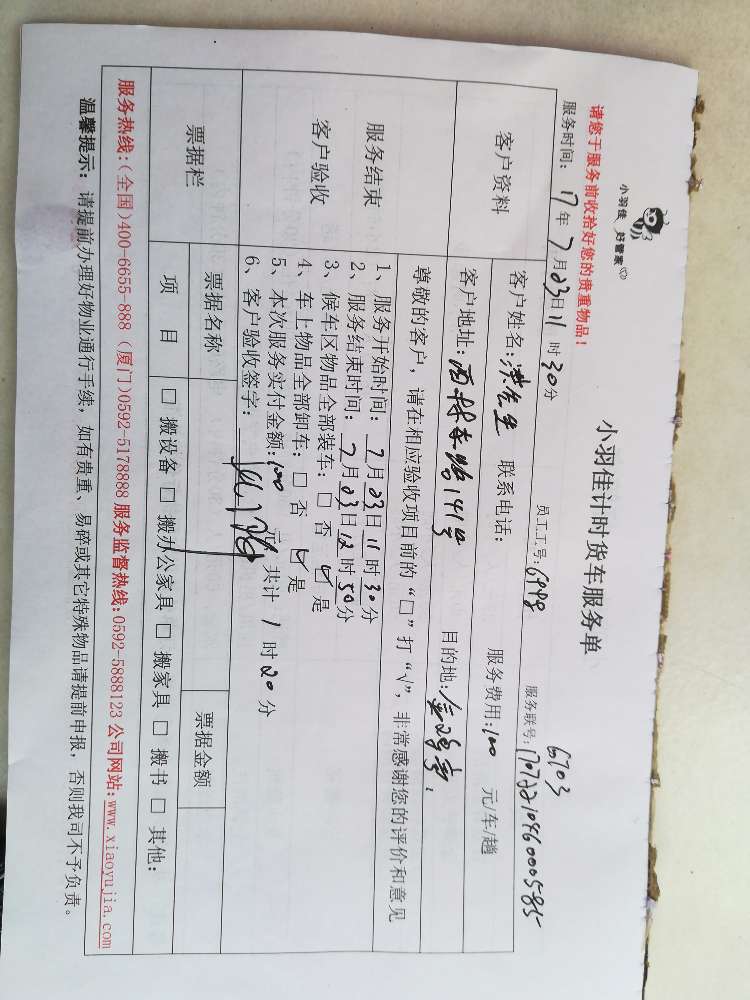 小羽佳 好管家
小羽佳计时货车服务单
请您于服务前收拾好您的贵重物品！
6703
服务时间：17年7月23日11时30分 员工工号：6998 服务联号：1707221046000585
客户资料
客户姓名：洪先生 联系电话： 服务费用：100 元/车/趟
客户地址：西林东路141号 目的地：金鸡亭
服务结束
客户验收
尊敬的客户，请在相应验收项目前的“□”打“√”，非常感谢您的评价和意见
1、服务开始时间：7月23日11时30分
2、服务结束时间：7月23日12时50分
3、候车区物品全部装车：□ 否 ☑ 是
4、车上物品全部卸车：□ 否 ☑ 是
5、本次服务实付金额：100元 共计 1 时 20 分
6、客户验收签字：
票据栏
票据名称 票据金额
项 目 □ 搬设备 □ 搬办公家具 □ 搬家具 □ 搬书 □ 其他：
服务热线：(全国)400-6655-888 (厦门)0592-5178888 服务监督热线：0592-5888123 公司网站：www.xiaoyujia.com
温馨提示：请提前办理好物业通行手续，如有贵重、易碎或其它特殊物品请提前申报，否则我司不予负责。